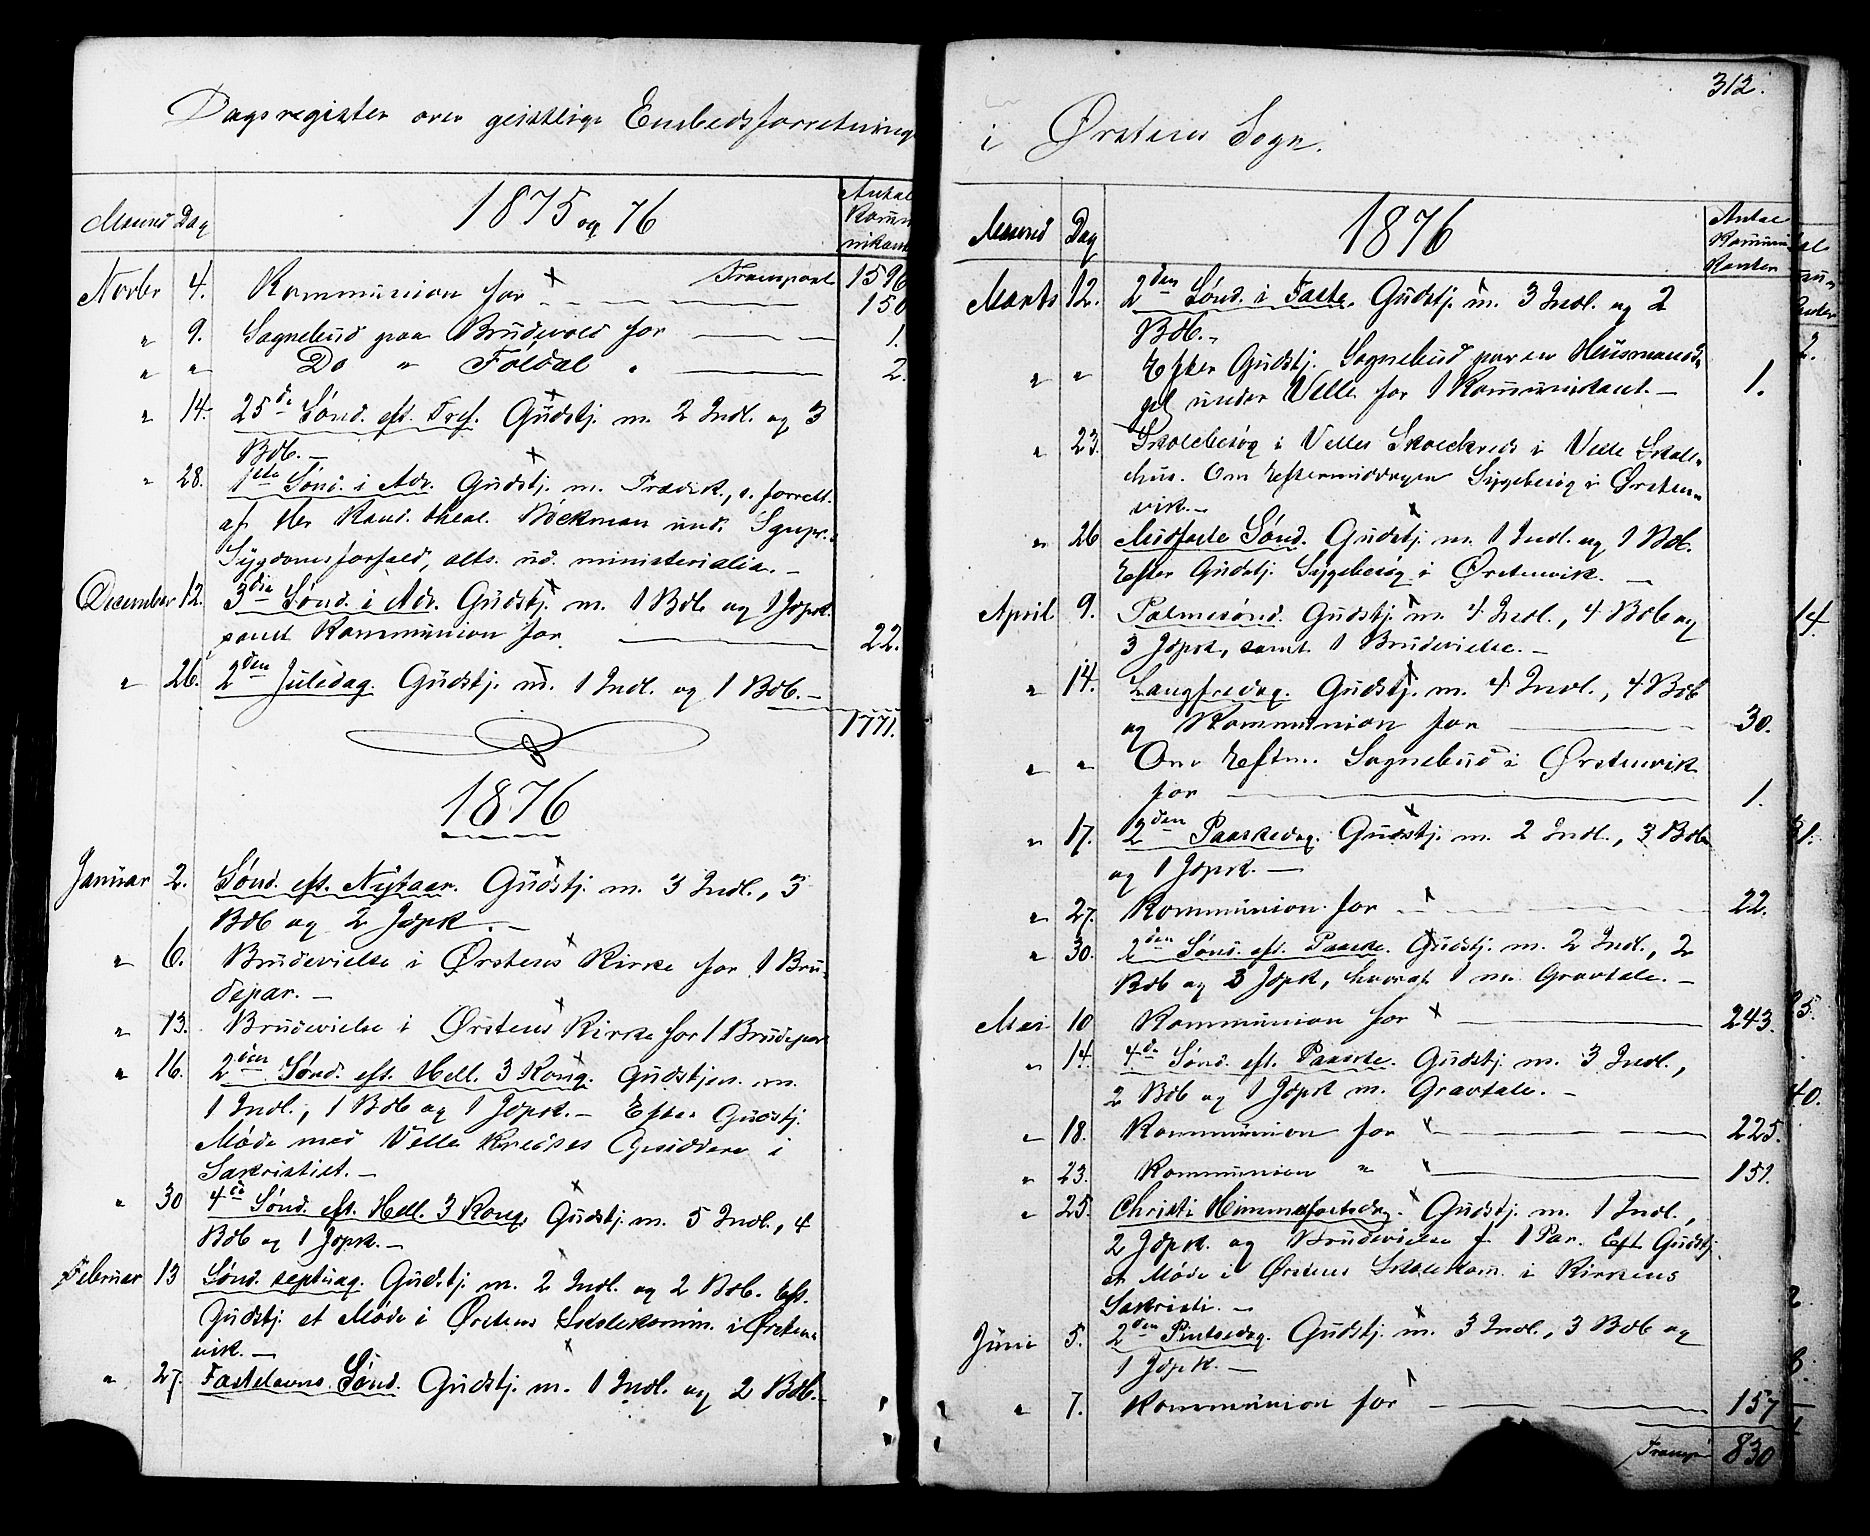 Dagsregister over geistlige Embedsforretning
Maaned Dag 1875 og 76 Antal Kommu nikan
Transport 1596
Novbr 4. Kommunion for 150
" 9. Sognebud paa Brudevold for 1.
" " Do " Foldal " 2.
" 14. 25de Sønd. eft. Tref. Gudstj. m. 2 Indl. og 3
Bdb. –
" 28. 1ste Sønd. i Adv. Gudstj. m. Prædik., s. forrett.
af Hr Kand. theol. Bøckman und. Sgnpr.s
Sygdomsforfald, alts. ud. ministerialia. –
December 12. 3die Sønd. i Adv. Gudstj. m. 1 Bdb og 1 Jdpk.
samt Kommunion for 22.
" 26. 2den Juledag. Gudstj. m. 1 Indl. og 1 Bdb. –
1771.
1876
Januar 2. Sønd. eft. Nytaar. Gudstj. m. 3 Indl., 3
Bdb og 2 Jdpk. –
" 6. Brudevielse i Ørstens Kirke for 1 Bru-
depar. –
" 13. Brudevielse i Ørstens Kirke for 1 Brudepar
" 16. 2den Sønd. eft. Hell. 3 Kong. Gudstjen. m.
1 Indl., 1 Bdb og 1 Jdpk. – Efter Gudstj.
Møde med Velle Kredses Opsiddere i
Sakristiet. –
" 30 4de Sønd. eft. Hell. 3 Kong. Gudstj. m. 5 Indl., 4
Bdb og 1 Jdpk. –
Februar 13 Sønd. septuag. Gudstj. m. 2 Indl. og 2 Bdb. Eft.
Gudstj. et Møde i Ørstens Skolekomm. i Ørsten-
vik. –
" 27. Fastelavns Sønd. Gudstj. m. 1 Indl. og 2 Bdb. –
312.
i Ørstens Sogn.
Maaned Dag 1876 Antal Kommuni kanter
Marts 12. 2den Sønd. i Faste. Gudstj. m. 3 Indl. og 2
Bdb. –
" " Efter Gudstj. Sognebud paa en Husmands-
pl. under Velle for 1 Kommunikant. – 1.
" 23. Skolebesøg i Velle Skolekreds i Velle Skole-
hus. Om Eftermiddagen Sygebesøg i Ørsten-
vik. –
" 26 Midfaste Sønd. Gudstj. m. 1 Indl. og 1 Bdb.
Efter Gudstj. Sygebesøg i Ørstenvik. –
April 9. Palmesønd. Gudstj. m. 4 Indl., 4 Bdb og
3 Jdpk, samt 1 Brudevielse. –
" 14. Langfredag. Gudstj. m. 4 Indl., 4 Bdb
og Kommunion for 30.
" " Om Eftm. Sognebud i Ørstenvik
for 1.
" 17. 2den Paaskedag. Gudstj. m. 2 Indl., 3 Bdb
og 1 Jdpk. –
" 27. Kommunion for 22.
" 30. 2den Sønd. eft. Paaske. Gudstj. m. 2 Indl., 2
Bdb og 3 Jdpk, hvoraf 1 m. Gravtale. –
Mai 10 Kommunion for 243.
" 14. 4de Sønd. eft. Paaske. Gudstj. m. 3 Indl.,
2 Bdb og 1 Jdpk m. Gravtale. –
" 18. Kommunion for 225.
" 23. Kommunion " 151.
" 25. Christi Himmelfartsdag. Gudstj. m. 1 Indl.,
2 Jdpk. og Brudevielse f. 1 Par. Eft. Gudstj.
et Møde i Ørstens Skolekom. i Kirkens
Sakristi. –
Juni 5. 2den Pintsedag. Gudstj. m. 3 Indl., 3 Bdb og
1 Jdpk. –
" 7. Kommunion for 157
Transp. 830